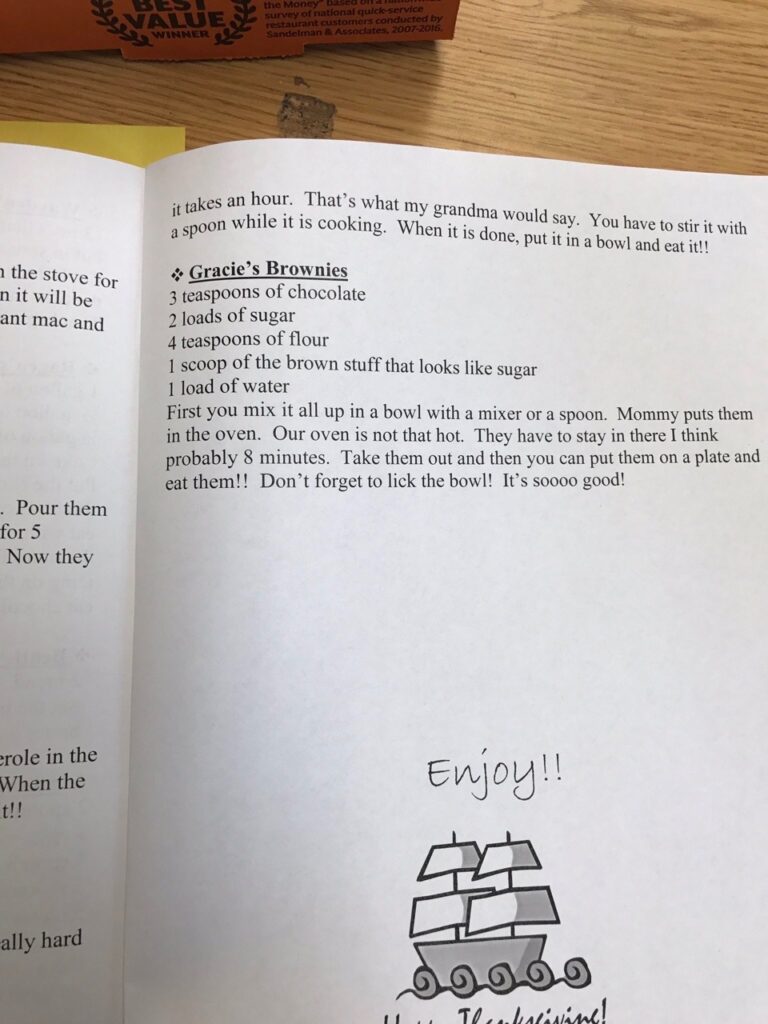 BEST
VALUE
WINNER
the Money" based on a nationwide
survey of national quick-service
restaurant customers conducted by
Sandelman & Associates, 2007-2016.
the stove for
it will be
mac and
. Pour them
for 5
Now they
in the
When the
hard
it takes an hour. That's what my grandma would say. You have to stir it with
a spoon while it is cooking. When it is done, put it in a bowl and eat it!!
❖ Gracie's Brownies
3 teaspoons of chocolate
2 loads of sugar
4 teaspoons of flour
1 scoop of the brown stuff that looks like sugar
1 load of water
First you mix it all up in a bowl with a mixer or a spoon. Mommy puts them
in the oven. Our oven is not that hot. They have to stay in there I think
probably 8 minutes. Take them out and then you can put them on a plate and
eat them!! Don't forget to lick the bowl! It's soooo good!
Enjoy!!
Thanksgiving!